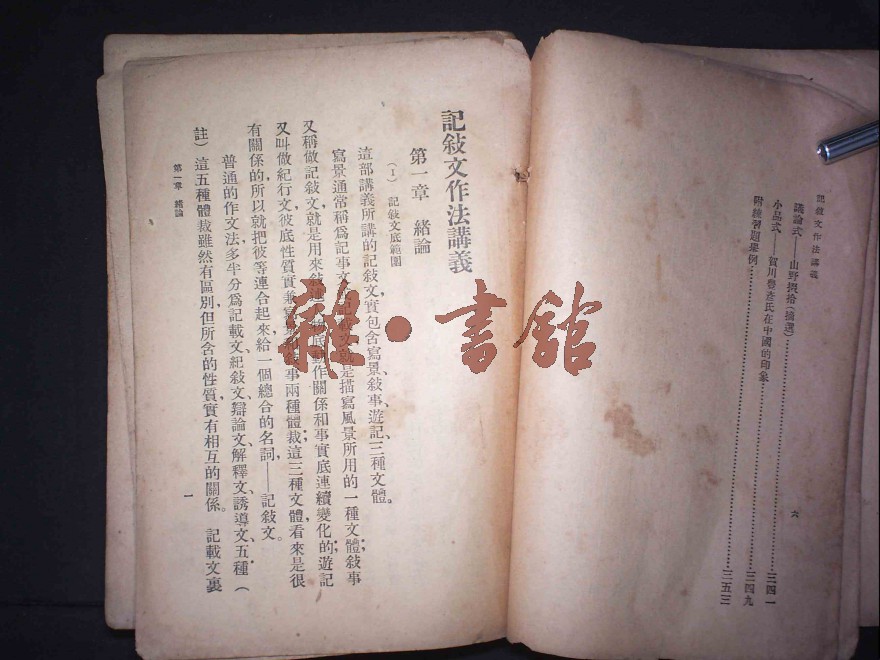 記敍文作法講義
議論式——山野掇拾(摘選)……三四一
小品式——賀川豐彥氏在中國的印象……三四九
附練習題舉例……三五三
六
記敍文作法講義
第一章 緒論
(1) 記敍文底範圍
這部講義所講的記敍文，實包含寫景、敍事、遊記、三種文體。
寫景通常稱爲記事文就是描寫風景所用的一種文體；敍事
又稱做記敍文，就是用來敍底動作關係和事實底連續變化的；遊記
又叫做紀行文，彼底性質實兼寫敍事兩種體裁；這三種文體看來是很
有關係的，所以就把彼等連合起來，給一個總合的名詞——記敍文。
普通的作文法，多半分爲記載文、紀敍文、辯論文、解釋文、誘導文、五種（
註）這五種體裁雖然有區別，但所含的性質，實有相互的關係。記載文裏
第一章 緒論
一
雜·書館